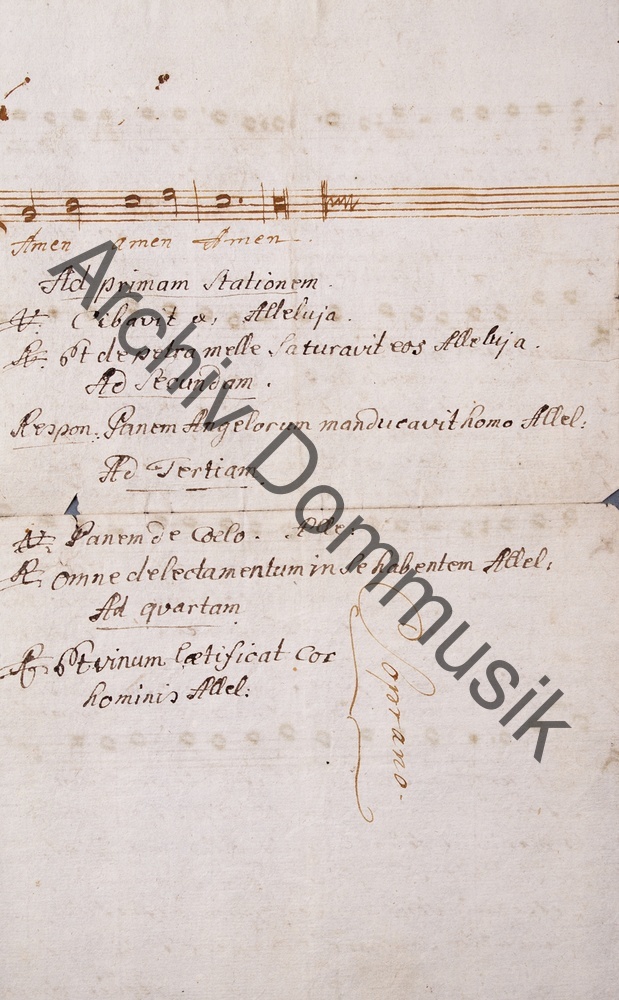 Amen amen Amen
Ad primam Stationem.
℣. Cibavit &, Alleluja.
℟. Et de petra melle Saturavit eos Alleluja.
Ad Secundam.
Respon: Panem Angelorum manducavit homo Allel:
Ad Tertiam
℣. Panem de Coelo. Alle:
℟. omne delectamentum in Se habentem Allel:
Ad quartam
℟. Et vinum lætificat Cor
hominis Allel:
Soprano
Archiv Dommusik